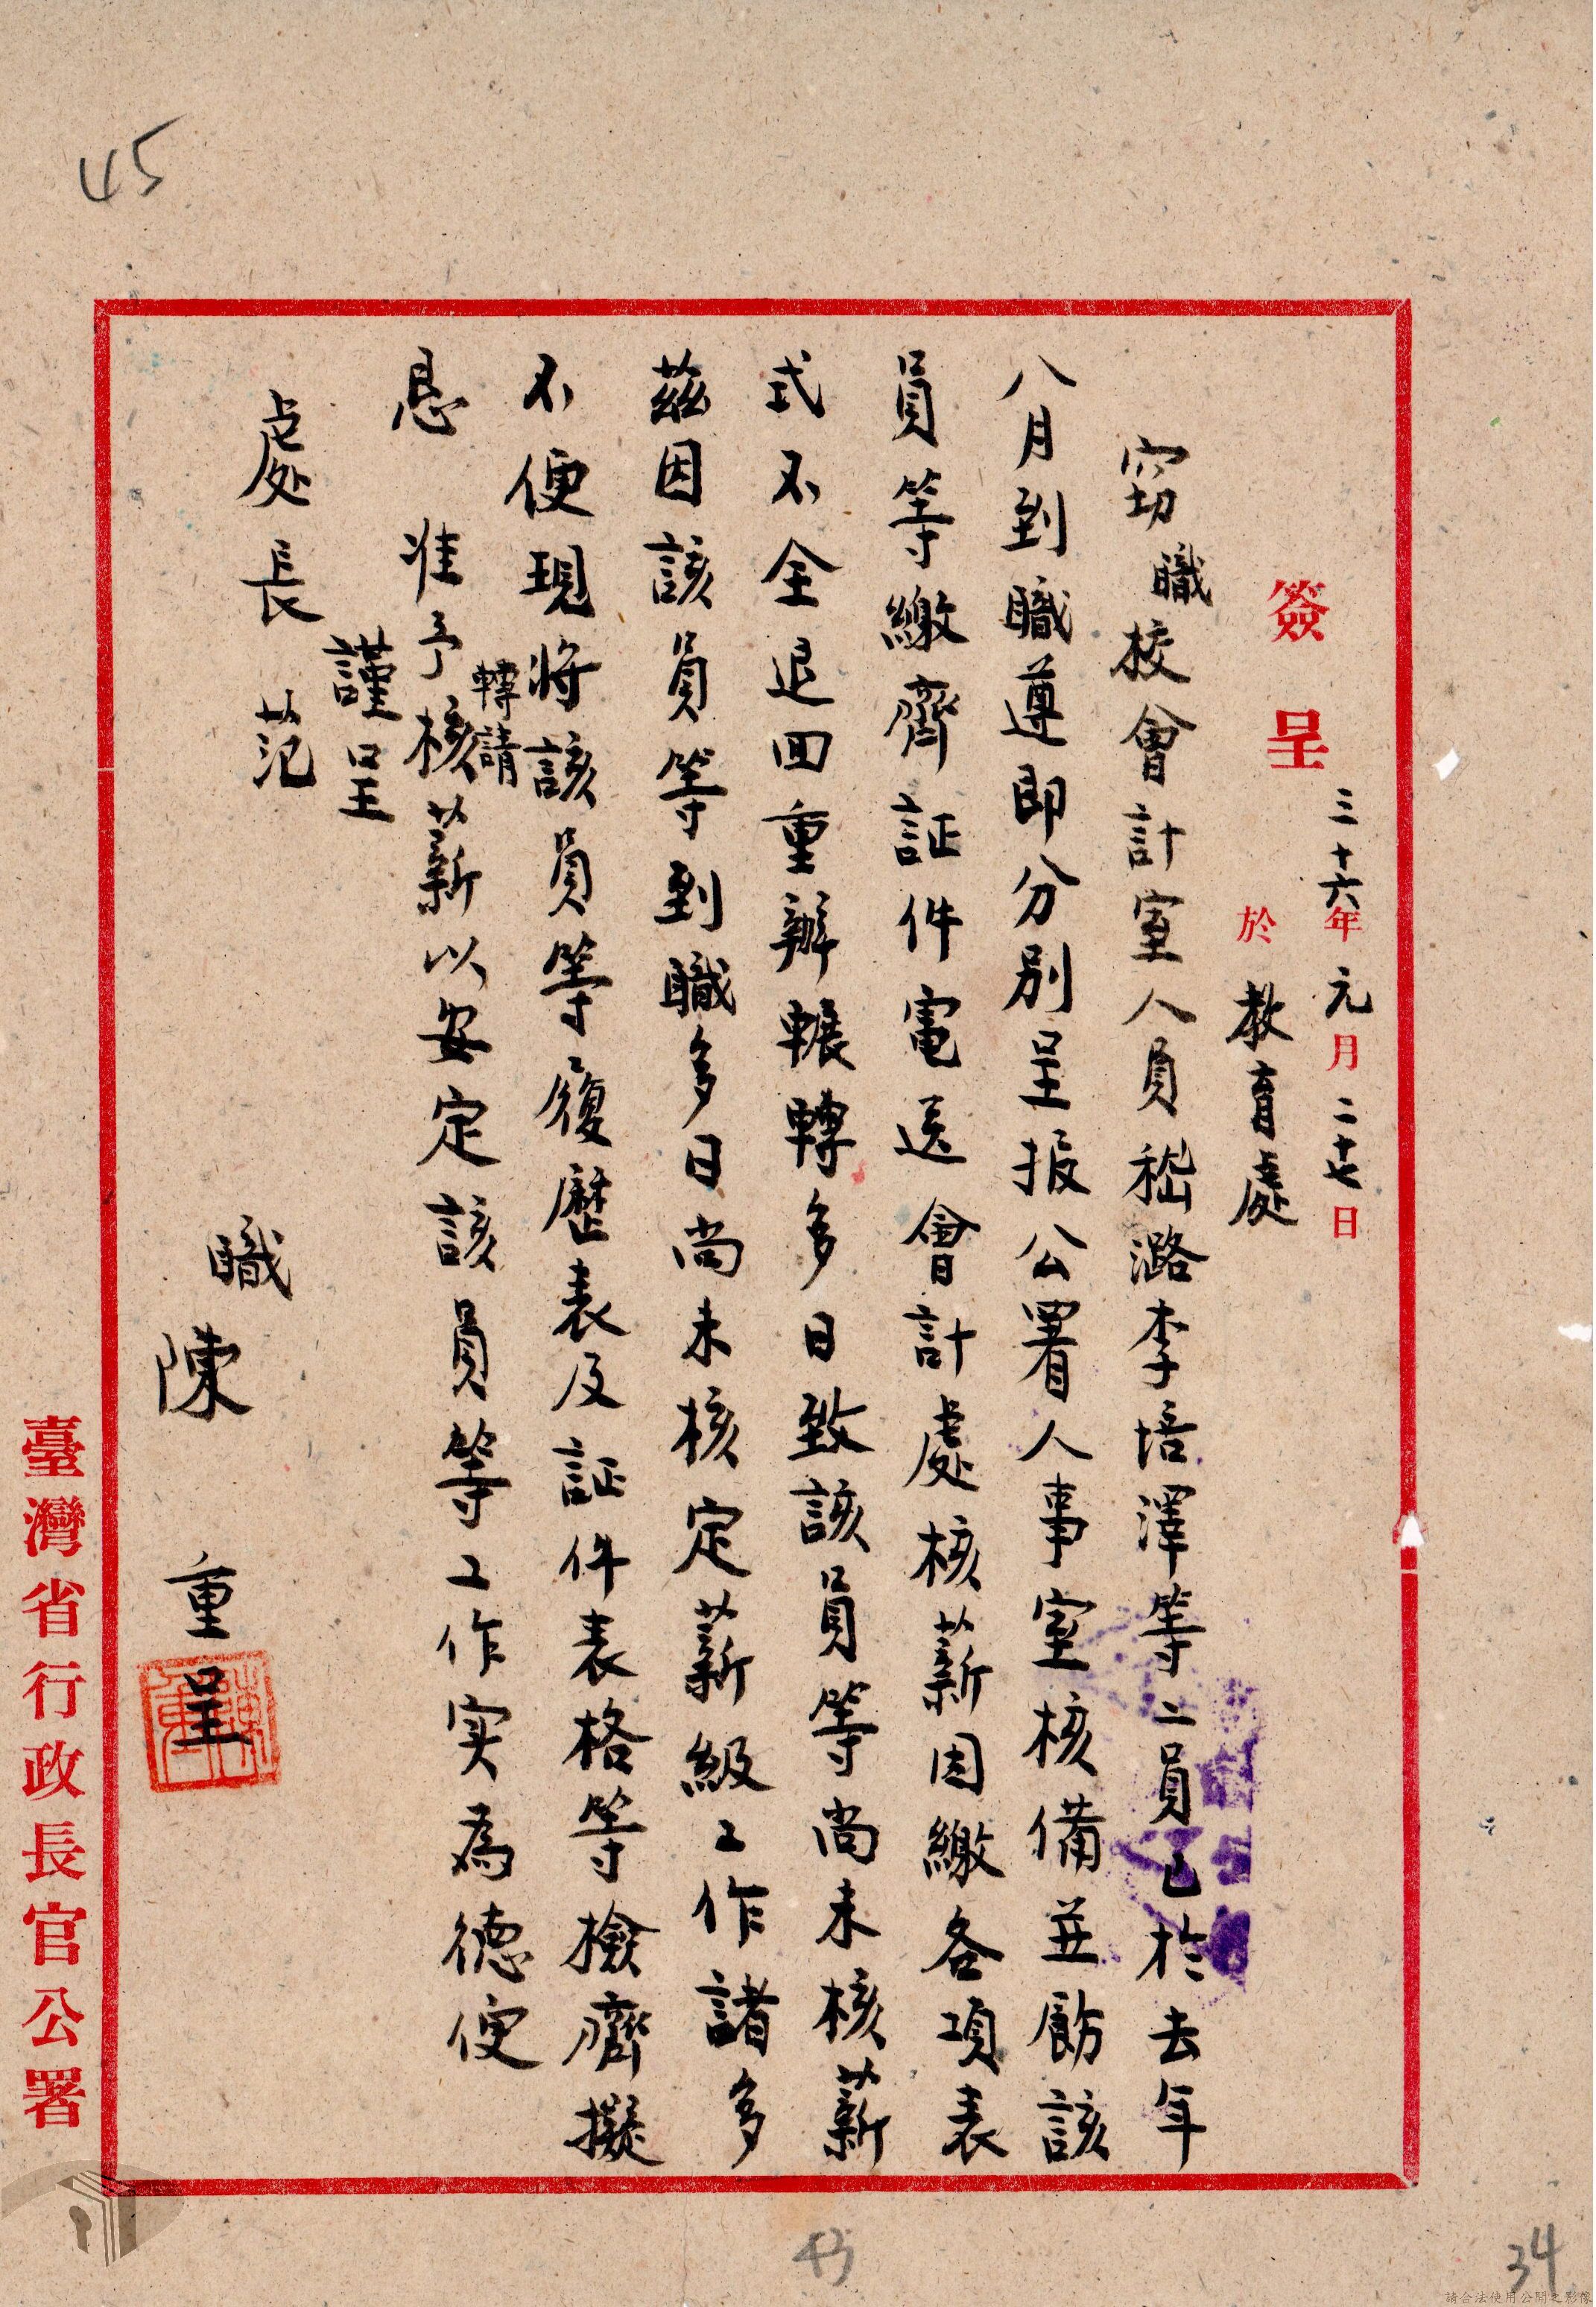 45
簽呈
三十六年元月二十七日
於教育處
竊職校會計室人員嵇潞李培澤等二員已於去年
八月到職遵即分別呈报公署人事室核備並飭該
員等繳齊証件電送會計處核薪因繳各項表
式不全退回重辦輾轉多日致該員等尚未核薪
茲因該員等到職多日尚未核定薪級工作諸多
不便現將該員等履歷表及証件表格等檢齊擬
轉請
恳准予核薪以安定該員等工作实為德便
謹呈
處長范
職陳重呈
臺灣省行政長官公署
43
34
請合法使用公開之影像